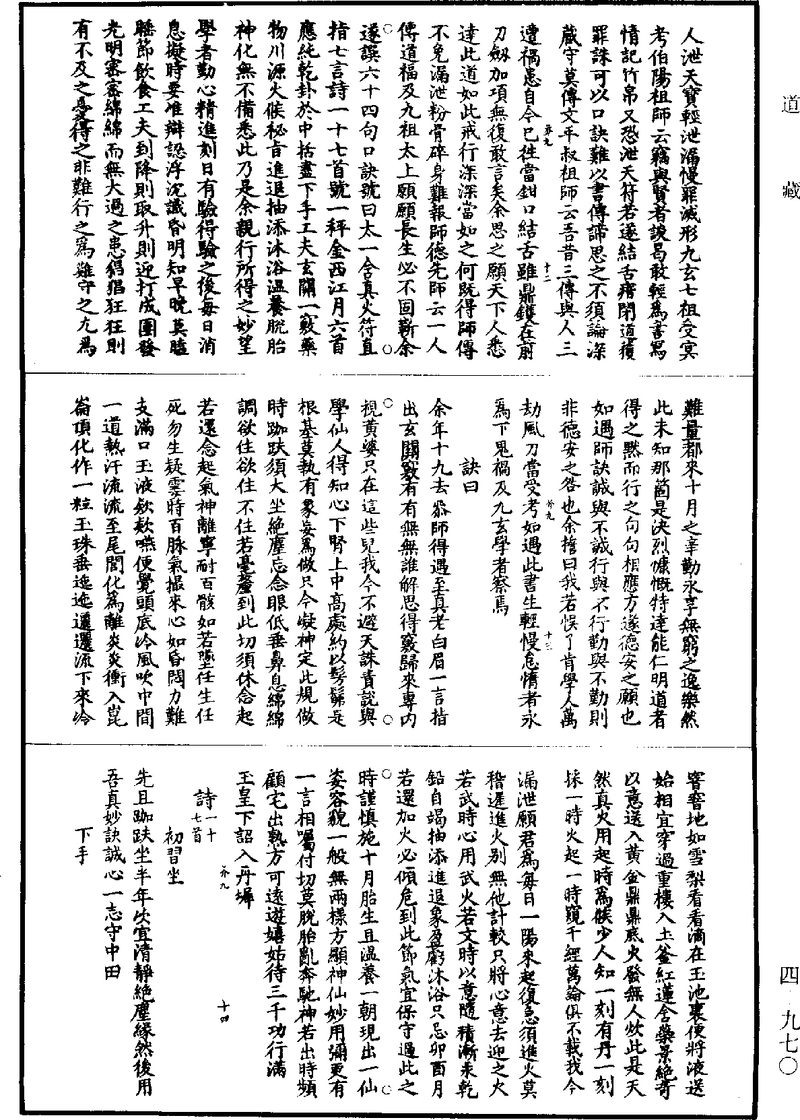 道藏
四·九七〇
人泄天寶輕泄漏慢罪滅形九玄七祖受冥
考伯陽祖師云竊與賢者談曷敢輕為書寫
情記竹帛又恐泄天符若遂結舌瘖閉道獲
罪誅可以口訣難以書傳諦思之不須論深
藏守莫傳文平叔祖師云吾昔三傳與人三
遭禍患自今已徃當鉗口結舌雖鼎鑊在前
刀劒加項無復敢言矣余思之願天下人悉
達此道如此戒行深深當如之何既得師傳
不免漏泄粉骨碎身難報師德先師云一人
傳道福及九祖太上願願長生必不固靳余
遂譔六十四句口訣號曰太一含真火符直
指七言詩一十七首號一秤金西江月六首
應純乾卦於中括盡下手工夫玄關一竅藥
物川源火候秘旨進退抽添沐浴溫養脫胎
神化無不備悉此乃是余親行所得之妙望
學者勤心精進刻日有驗得驗之後每日消
息擬時要准辯認浮沉識昏明知早晚莫瞌
睡節飲食工夫到降則取升則迎打成團發
光明密密綿綿而無大過之患猖猖狂狂則
有不及之憂得之非難行之為難守之尤為
難量都來十月之辛勤永享無窮之逸樂然
此未知那箇是決烈慷慨特達能仁明道者
得之默而行之句句相應方遂德安之願也
如遇師訣誠與不誠行與不行勤與不勤則
非德安之咎也余誓曰我若悞了肯學人萬
劫風刀當受考如遇此書生輕慢怠惰者永
為下鬼禍及九玄學者察焉
訣曰
余年十九去叅師得遇至真老白眉一言指
出玄關竅有有無無誰解思得竅歸來專內
視黃婆只在這些兒我今不避天誅責說與
學仙人得知心下腎上中高處約以髣髴是
根基莫執有象妄為做只今凝神定此規做
時跏趺須大坐絕塵忘念眼低垂鼻息綿綿
調欲住欲住不住若毫釐到此切須休念起
若還念起氣神離寧耐百骸如若墜任生任
死勿生疑霎時百脉氣撮來心如昏悶力難
支滿口玉液欸欸嚥便覺頭底冷風吹中間
一道熱汗流流至尾閭化為離炎炎衝入崑
崙頂化作一粒玉珠垂迤迤邐邐流下來冷
窨窨地如雪梨看看滴在玉池裏便將液送
始相宜穿過重樓入土釜紅蓮含藥景絕奇
以意送入黃金鼎鼎底火發無人炊此是天
然真火用起時為候少人知一刻有丹一刻
採一時火起一時窺千經萬論俱不載我今
漏泄願君為每日一陽來起復急須進火莫
稽遲進火別無他計較只將心意去迎之火
若武時心用武火若文時以意隨積漸末乾
鉛自竭抽添進退象盈虧沐浴只忌卯酉月
若還加火必傾危到此節氣宜保守過此之
時謹慎施十月胎生且溫養一朝現出一仙
姿容貌一般無兩樣方顯神仙妙用彌更有
一言相囑付切莫脫胎亂奔馳神若出時頻
顧宅出熟方可遠遊嬉姑待三千功行滿
玉皇下詔入丹墀
詩一十七首
初習坐
先且跏趺坐半年次宜清靜絕塵緣然後用
吾真妙訣誠心一志守中田
下手